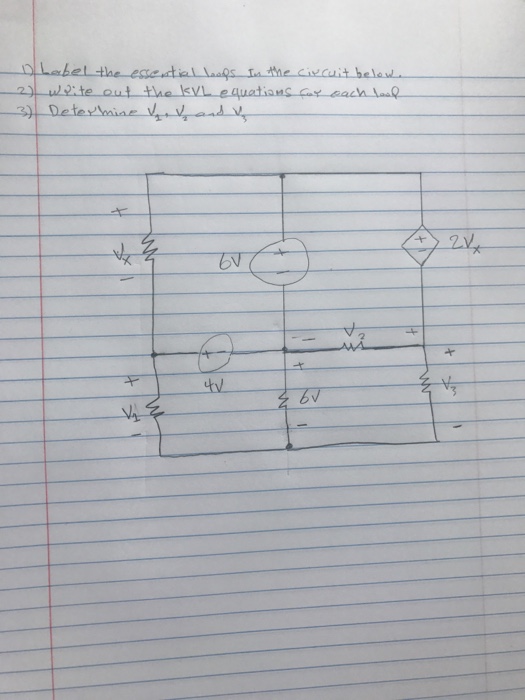 1) Label the essential loops In the circuit below.
2) Write out the KVL equations for each loop
3) Determine V₁, V₂ and V₃
+
Vx
-
6V
+
-
+
-
2Vx
+ -
4V
- V₂ +
+
V₁
-
+
6V
-
+
V₃
-